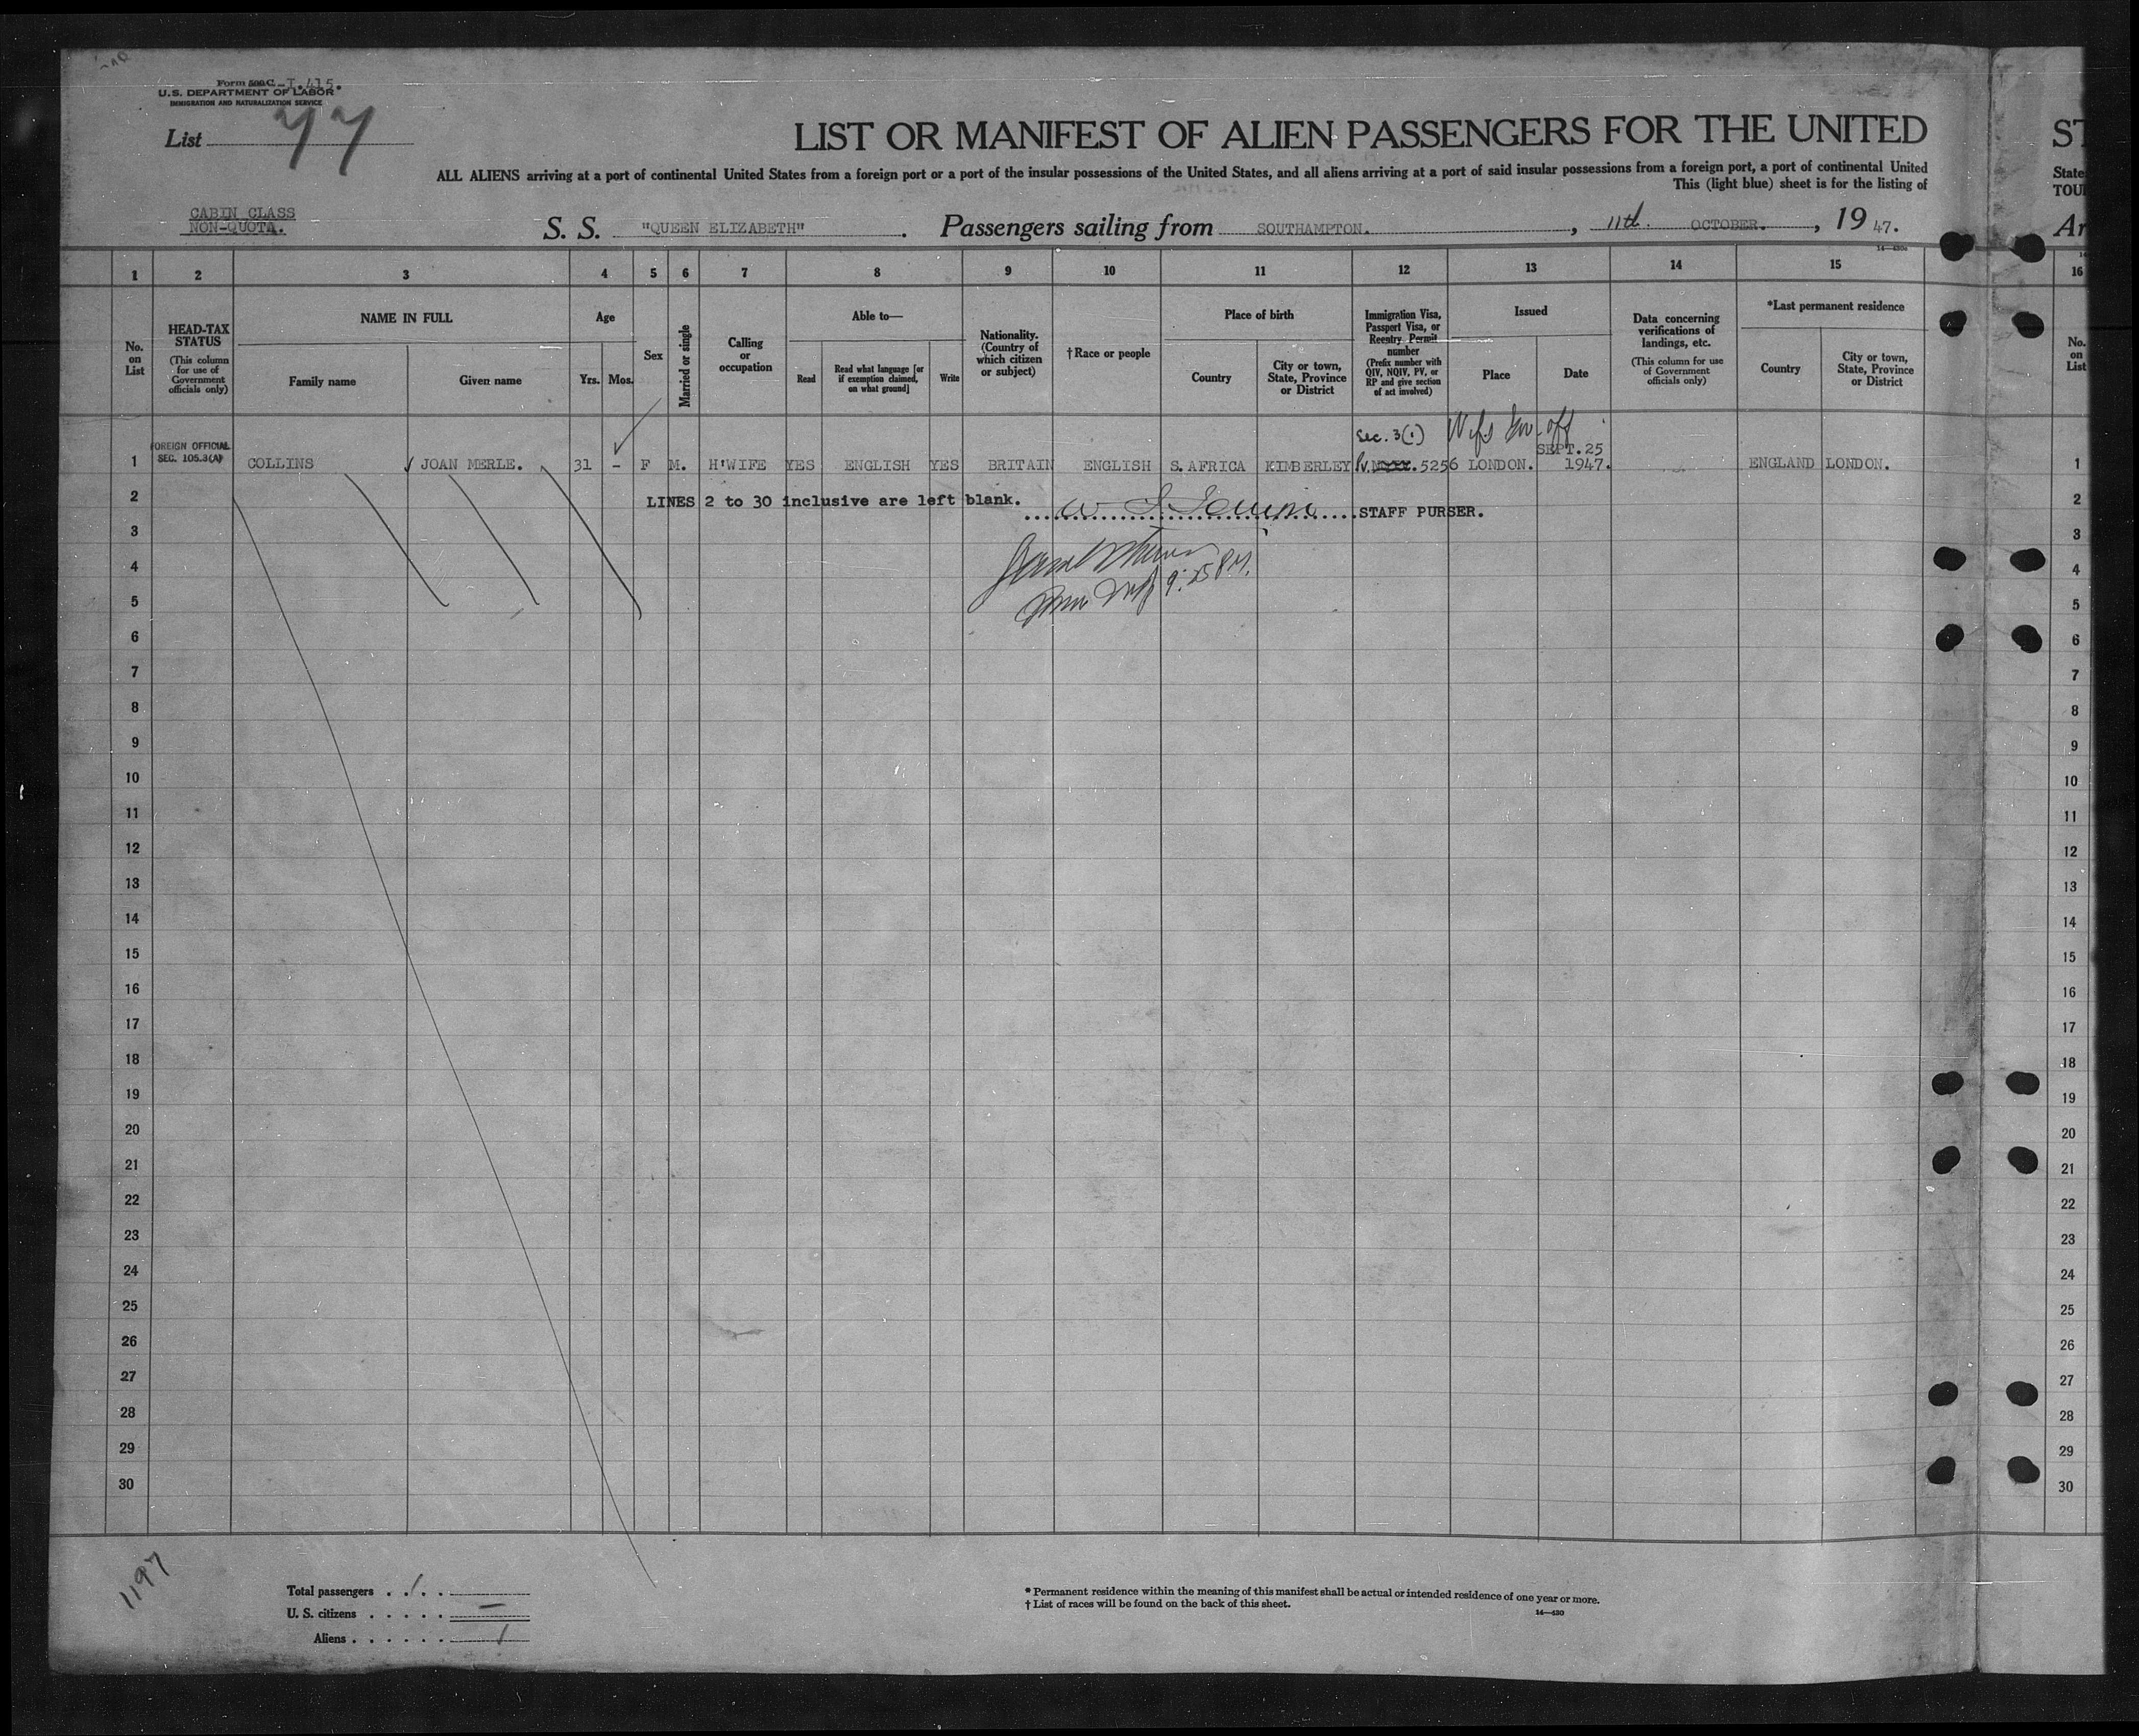 Form 500 C -I.415.
U.S. DEPARTMENT OF LABOR
IMMIGRATION AND NATURALIZATION SERVICE
List 77
LIST OR MANIFEST OF ALIEN PASSENGERS FOR THE UNITED
ST
ALL ALIENS arriving at a port of continental United States from a foreign port or a port of the insular possessions of the United States, and all aliens arriving at a port of said insular possessions from a foreign port, a port of continental United
State
This (light blue) sheet is for the listing of
TOU
CABIN CLASS
NON-QUOTA.
S. S. "QUEEN ELIZABETH". Passengers sailing from SOUTHAMPTON., 11th. OCTOBER., 19 47.
Ar
1 2 3 4 5 6 7 8 9 10 11 12 13 14 15 16
No. on List
HEAD-TAX STATUS
(This column for use of Government officials only)
NAME IN FULL
Family name
Given name
Age
Yrs. Mos.
Sex
Married or single
Calling or occupation
Able to—
Read
Read what language [or if exemption claimed, on what ground]
Write
Nationality. (Country of which citizen or subject)
†Race or people
Place of birth
Country
City or town, State, Province or District
Immigration Visa, Passport Visa, or Reentry Permit number
(Prefix number with QIV, NQIV, PV, or RP and give section of act involved)
Issued
Place
Date
Data concerning verifications of landings, etc.
(This column for use of Government officials only)
*Last permanent residence
Country
City or town, State, Province or District
No. on List
FOREIGN OFFICIAL
SEC. 105.3(A)
Sec. 3(1)
SEPT.25
1 COLLINS JOAN MERLE. 31 - F M. H'WIFE YES ENGLISH YES BRITAIN ENGLISH S.AFRICA KIMBERLEY PV. 5256 LONDON. 1947. ENGLAND LONDON. 1
2 LINES 2 to 30 inclusive are left blank. 2
STAFF PURSER.
3 3
4 4
9:25 PM.
5 5
6 6
7 7
8 8
9 9
10 10
11 11
12 12
13 13
14 14
15 15
16 16
17 17
18 18
19 19
20 20
21 21
22 22
23 23
24 24
25 25
26 26
27 27
28 28
29 29
30 30
1197
Total passengers . . 1 . .
U. S. citizens . . . . . —
Aliens . . . . . . 1
* Permanent residence within the meaning of this manifest shall be actual or intended residence of one year or more.
† List of races will be found on the back of this sheet.
14—430